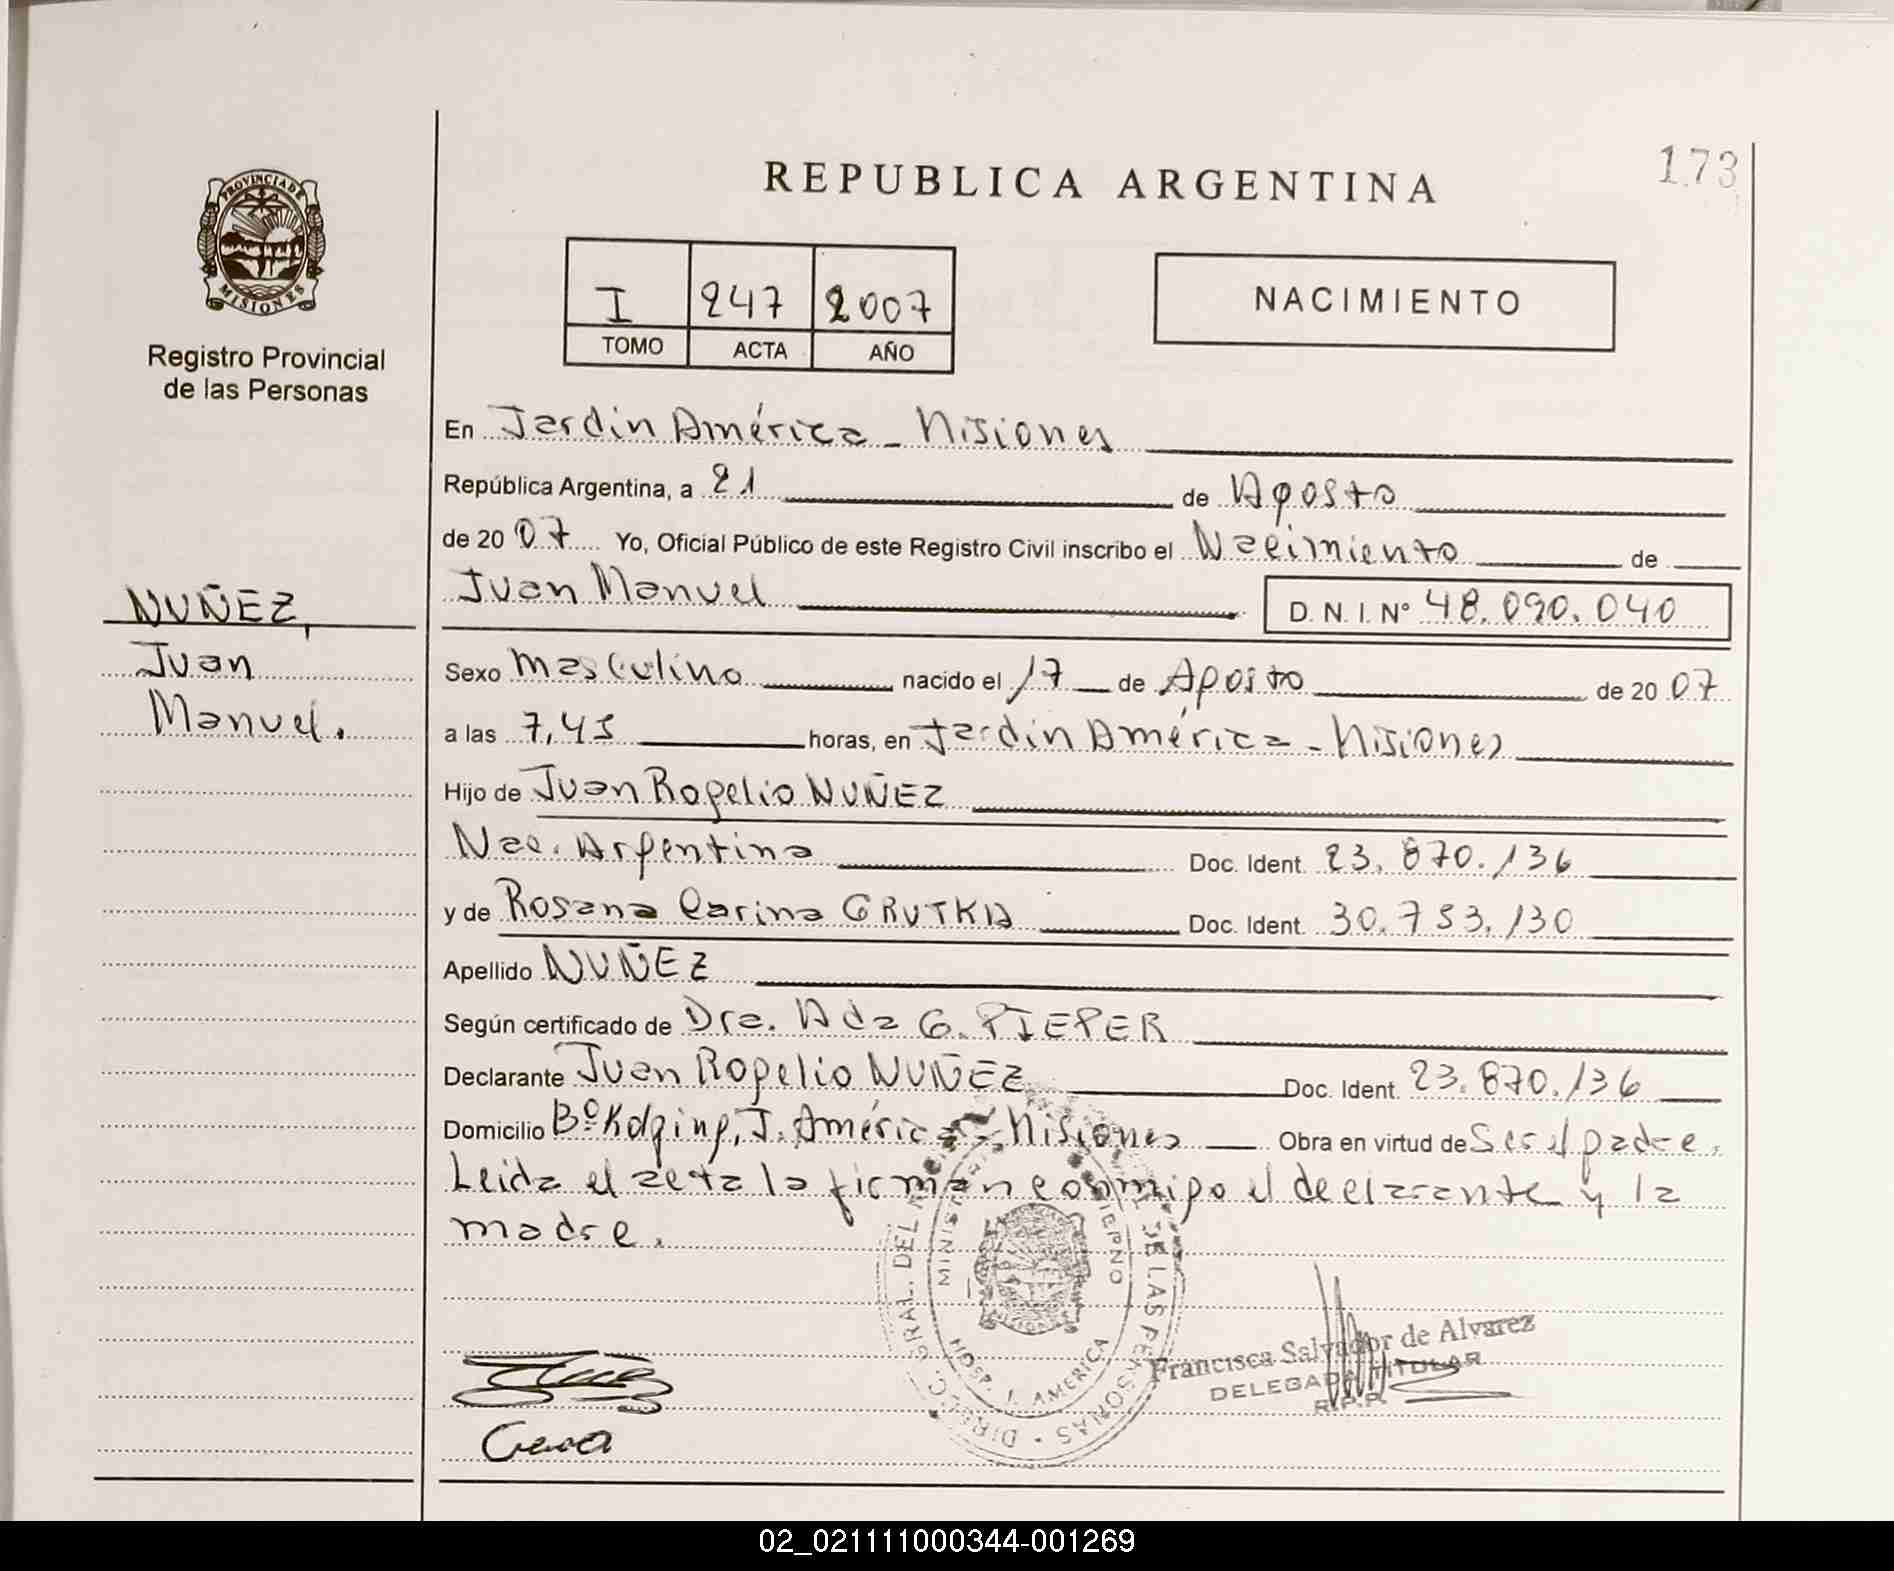 173
REPUBLICA ARGENTINA
PROVINCIA DE
MISIONES
Registro Provincial
de las Personas
I 247 2007
TOMO ACTA AÑO
NACIMIENTO
NUÑEZ,
Juan
Manuel.
En Jardín América - Misiones
República Argentina, a 21 de Agosto
de 20 07 Yo, Oficial Público de este Registro Civil inscribo el Nacimiento de
Juan Manuel D. N. I. Nº 48.090.040
Sexo Masculino nacido el 17 de Agosto de 20 07
a las 7,45 horas, en Jardín América - Misiones
Hijo de Juan Rogelio NUÑEZ
Nac. Argentina Doc. Ident. 23.870.136
y de Rosana Carina GRUTKA Doc. Ident. 30.753.130
Apellido NUÑEZ
Según certificado de Dra. Ada G. PIEPER
Declarante Juan Rogelio NUÑEZ Doc. Ident. 23.870.136
Domicilio Bº Kolping, J. América - Misiones Obra en virtud de Ser el padre.
Leida el acta la firman conmigo el declarante y la
madre.
MINISTERIO GOBIERNO
HOSP. J. AMERICA
DE LAS PERSONAS
Francisca Salvador de Alvarez
DELEGADA TITULAR
R.P.P.
02_021111000344-001269